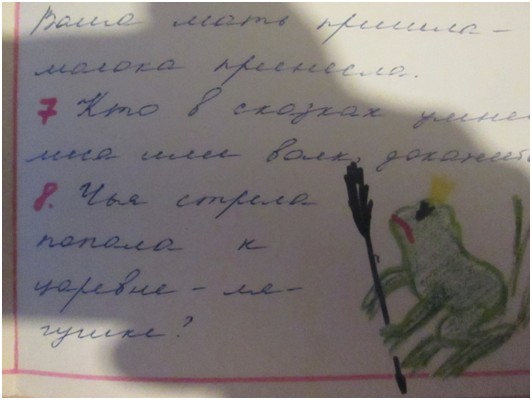 Ваша мать пришла -
молока принесла.
7 Кто в сказках умнее
лиса или волк, докажить
8. Чья стрела
попала к
царевне - ля-
гушке?